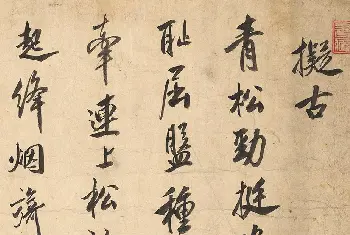 擬古
青松勁挺
耻屈盤種
牽連上松
起絳烟旖